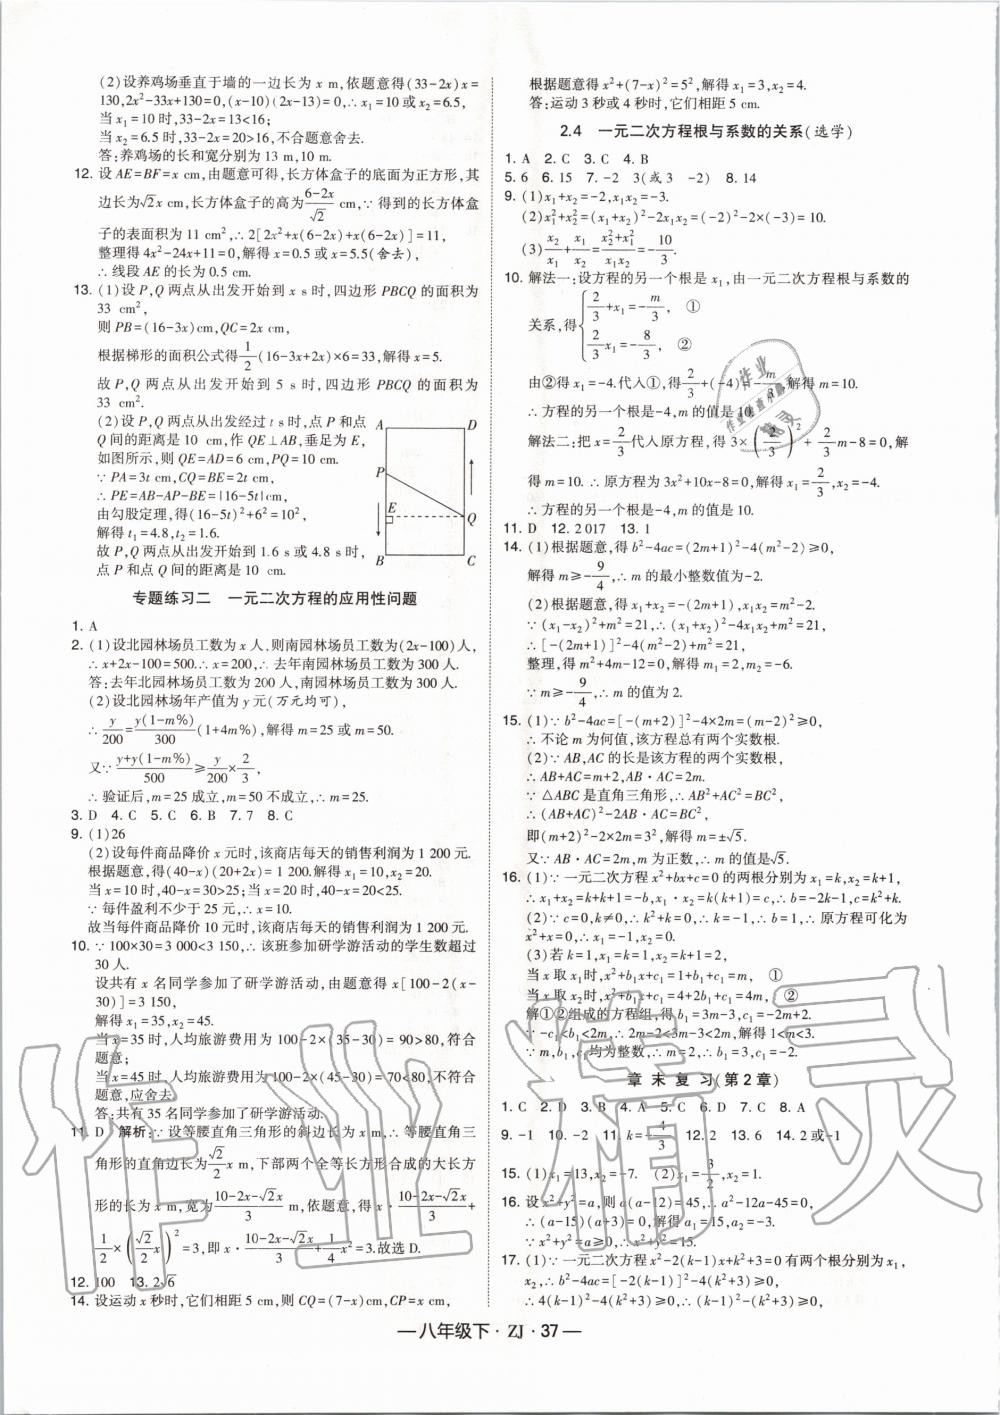 (2)设养鸡场垂直于墙的一边长为 x m,依题意得(33-2x)x=
130,2x²-33x+130=0,(x-10)(2x-13)=0,∴x₁=10或x₂=6.5,
当x₁=10时,33-2x=13<16;
当x₂=6.5时,33-2x=20>16,不合题意舍去.
答:养鸡场的长和宽分别为 13 m,10 m.
12. 设AE=BF=x cm,由题意可得,长方体盒子的底面为正方形,其
边长为√2x cm,长方体盒子的高为(6-2x)/√2 cm,∵得到的长方体盒
子的表面积为11 cm²,∴2[2x²+x(6-2x)+x(6-2x)]=11,
整理得4x²-24x+11=0,解得x=0.5或x=5.5(舍去),
∴线段AE的长为0.5 cm.
13. (1)设P,Q两点从出发开始到x s时,四边形PBCQ的面积为
33 cm²,
则PB=(16-3x)cm,QC=2x cm,
根据梯形的面积公式得1/2(16-3x+2x)×6=33,解得x=5.
故P,Q两点从出发开始到5 s时,四边形PBCQ的面积为
33 cm².
(2)设P,Q两点从出发经过t s时,点P和点
Q间的距离是10 cm,作QE⊥AB,垂足为E,
如图所示,则QE=AD=6 cm,PQ=10 cm.
∵PA=3t cm,CQ=BE=2t cm,
∴PE=AB-AP-BE=|16-5t|cm,
由勾股定理,得(16-5t)²+6²=10²,
解得t₁=4.8,t₂=1.6.
故P,Q两点从出发开始到1.6 s或4.8 s时,
点P和点Q间的距离是10 cm.
A D
P
E
Q
B C
专题练习二 一元二次方程的应用性问题
1. A
2. (1)设北园林场员工数为x人,则南园林场员工数为(2x-100)人,
∴x+2x-100=500.∴x=200,∴去年南园林场员工数为300人.
答:去年北园林场员工数为200人,南园林场员工数为300人.
(2)设北园林场年产值为y元(万元均可),
∴y/200=y(1-m%)/300(1+4m%),解得m=25或m=50.
又∵(y+y(1-m%))/500≥y/200×2/3,
∴验证后,m=25成立,m=50不成立,∴m=25.
3. D 4. C 5. C 6. B 7. 7 8. C
9. (1)26
(2)设每件商品降价x元时,该商店每天的销售利润为1 200元.
根据题意,得(40-x)(20+2x)=1 200.解得x₁=10,x₂=20.
当x=10时,40-x=30>25;当x=20时,40-x=20<25.
∵每件盈利不少于25元,∴x=20应舍去.
故当每件商品降价10元时,该商店每天的销售利润为1 200元.
10. ∵100×30=3 000<3 150,∴该班参加研学游活动的学生数超过
30人.
设共有x名同学参加了研学游活动,由题意得x[100-2(x-
30)]=3 150,
解得x₁=35,x₂=45.
当x=35时,人均旅游费用为100-2×(35-30)=90>80,符合
题意;
当x=45时,人均旅游费用为100-2×(45-30)=70<80,不符合
题意,应舍去.
答:共有35名同学参加了研学游活动.
11. D 解析:∵设等腰直角三角形的斜边长为x m,∴等腰直角三
角形的直角边长为√2/2 x m,下部两个全等长方形合并成的大长方
形的长为x m,宽为(10-2x-√2x)/3 m,依题意,得x·(10-2x-√2x)/3+
1/2×(√2/2 x)²=3,即x·(10-2x-√2x)/3+1/4x²=3.故选D.
12. 100 13. 2√6
14. 设运动x秒时,它们相距5 cm,则CQ=(7-x)cm,CP=x cm,
根据题意得x²+(7-x)²=5²,解得x₁=3,x₂=4.
答:运动3秒或4秒时,它们相距5 cm.
2.4 一元二次方程根与系数的关系(选学)
1. A 2. C 3. C 4. B
5. 6 6. 15 7. -2 3(或3 -2) 8. 14
9. (1)x₁+x₂=-2,x₁x₂=-3.
(2)x₁²+x₂²=(x₁+x₂)²-2x₁x₂=(-2)²-2×(-3)=10.
(3)x₂/x₁+x₁/x₂=(x₂²+x₁²)/(x₁x₂)=-10/3.
10. 解法一:设方程的另一个根是x₁,由一元二次方程根与系数的
关系,得{2/3+x₁=-m/3, ①
2/3x₁=-8/3, ②
由②得x₁=-4.代入①,得2/3+(-4)=-m/3,解得m=10.
∴方程的另一个根是-4,m的值是10.
解法二:把x=2/3代入原方程,得3×(2/3)²+2/3m-8=0,解
得m=10.∴原方程为3x²+10x-8=0,解得x₁=2/3,x₂=-4.
∴方程的另一个根是-4,m的值是10.
11. D 12. 2 017 13. 1
14. (1)根据题意,得b²-4ac=(2m+1)²-4(m²-2)≥0,
解得m≥-9/4,∴m的最小整数值为-2.
(2)根据题意,得x₁+x₂=-(2m+1),x₁x₂=m²-2,
∵(x₁-x₂)²+m²=21,∴(x₁+x₂)²-4x₁x₂+m²=21,
∴[-(2m+1)]²-4(m²-2)+m²=21,
整理,得m²+4m-12=0,解得m₁=2,m₂=-6,
∵m≥-9/4,∴m的值为2.
15. (1)∵b²-4ac=[-(m+2)]²-4×2m=(m-2)²≥0,
∴不论m为何值,该方程总有两个实数根.
(2)∵AB,AC的长是该方程的两个实数根,
∴AB+AC=m+2,AB·AC=2m.
∵△ABC是直角三角形,∴AB²+AC²=BC²,
∴(AB+AC)²-2AB·AC=BC²,
即(m+2)²-2×2m=3²,解得m=±√5.
又∵AB·AC=2m,m为正数,∴m的值是√5.
16. (1)∵一元二次方程x²+bx+c=0的两根分别为x₁=k,x₂=k+1,
∴x₁+x₂=k+k+1=-b,x₁·x₂=k(k+1)=c,∴b=-2k-1,c=k²+k.
(2)∵c=0,k≠0,∴k²+k=0,∴k=-1,∴b=1,∴原方程可化为
x²+x=0,∴x₁=-1,x₂=0.
(3)若k=1,则x₁=k=1,x₂=k+1=2,
当x取x₁时,x²+b₁x+c₁=1+b₁+c₁=m, ①
当x取x₂时,x²+b₁x+c₁=4+2b₁+c₁=4m, ②
解①②组成的方程组,得b₁=3m-3,c₁=-2m+2.
∵-c₁<b₁<2m,∴2m-2<3m-3<2m,解得1<m<3.
∵m,b₁,c₁均为整数,∴m=2.
章末复习(第2章)
1. C 2. D 3. B 4. A 5. C 6. D 7. C 8. A
9. -1 10. -2 11. k=-4/3 12. 2 13. 6 14. 2或-1
15. (1)x₁=13,x₂=-7. (2)x₁=3/2,x₂=1.
16. 设x²+y²=a,则a(a-12)=45,∴a²-12a-45=0,
∴(a-15)(a+3)=0.解得a₁=15,a₂=-3.
∵x²+y²=a≥0,∴x²+y²=15.
17. (1)∵一元二次方程x²-2(k-1)x+k²+3=0有两个根分别为x₁,
x₂,∴b²-4ac=[-2(k-1)]²-4(k²+3)≥0,
∴4(k-1)²-4(k²+3)≥0,∴(k-1)²-(k²+3)≥0,
—八年级下·ZJ·37—
作业精灵